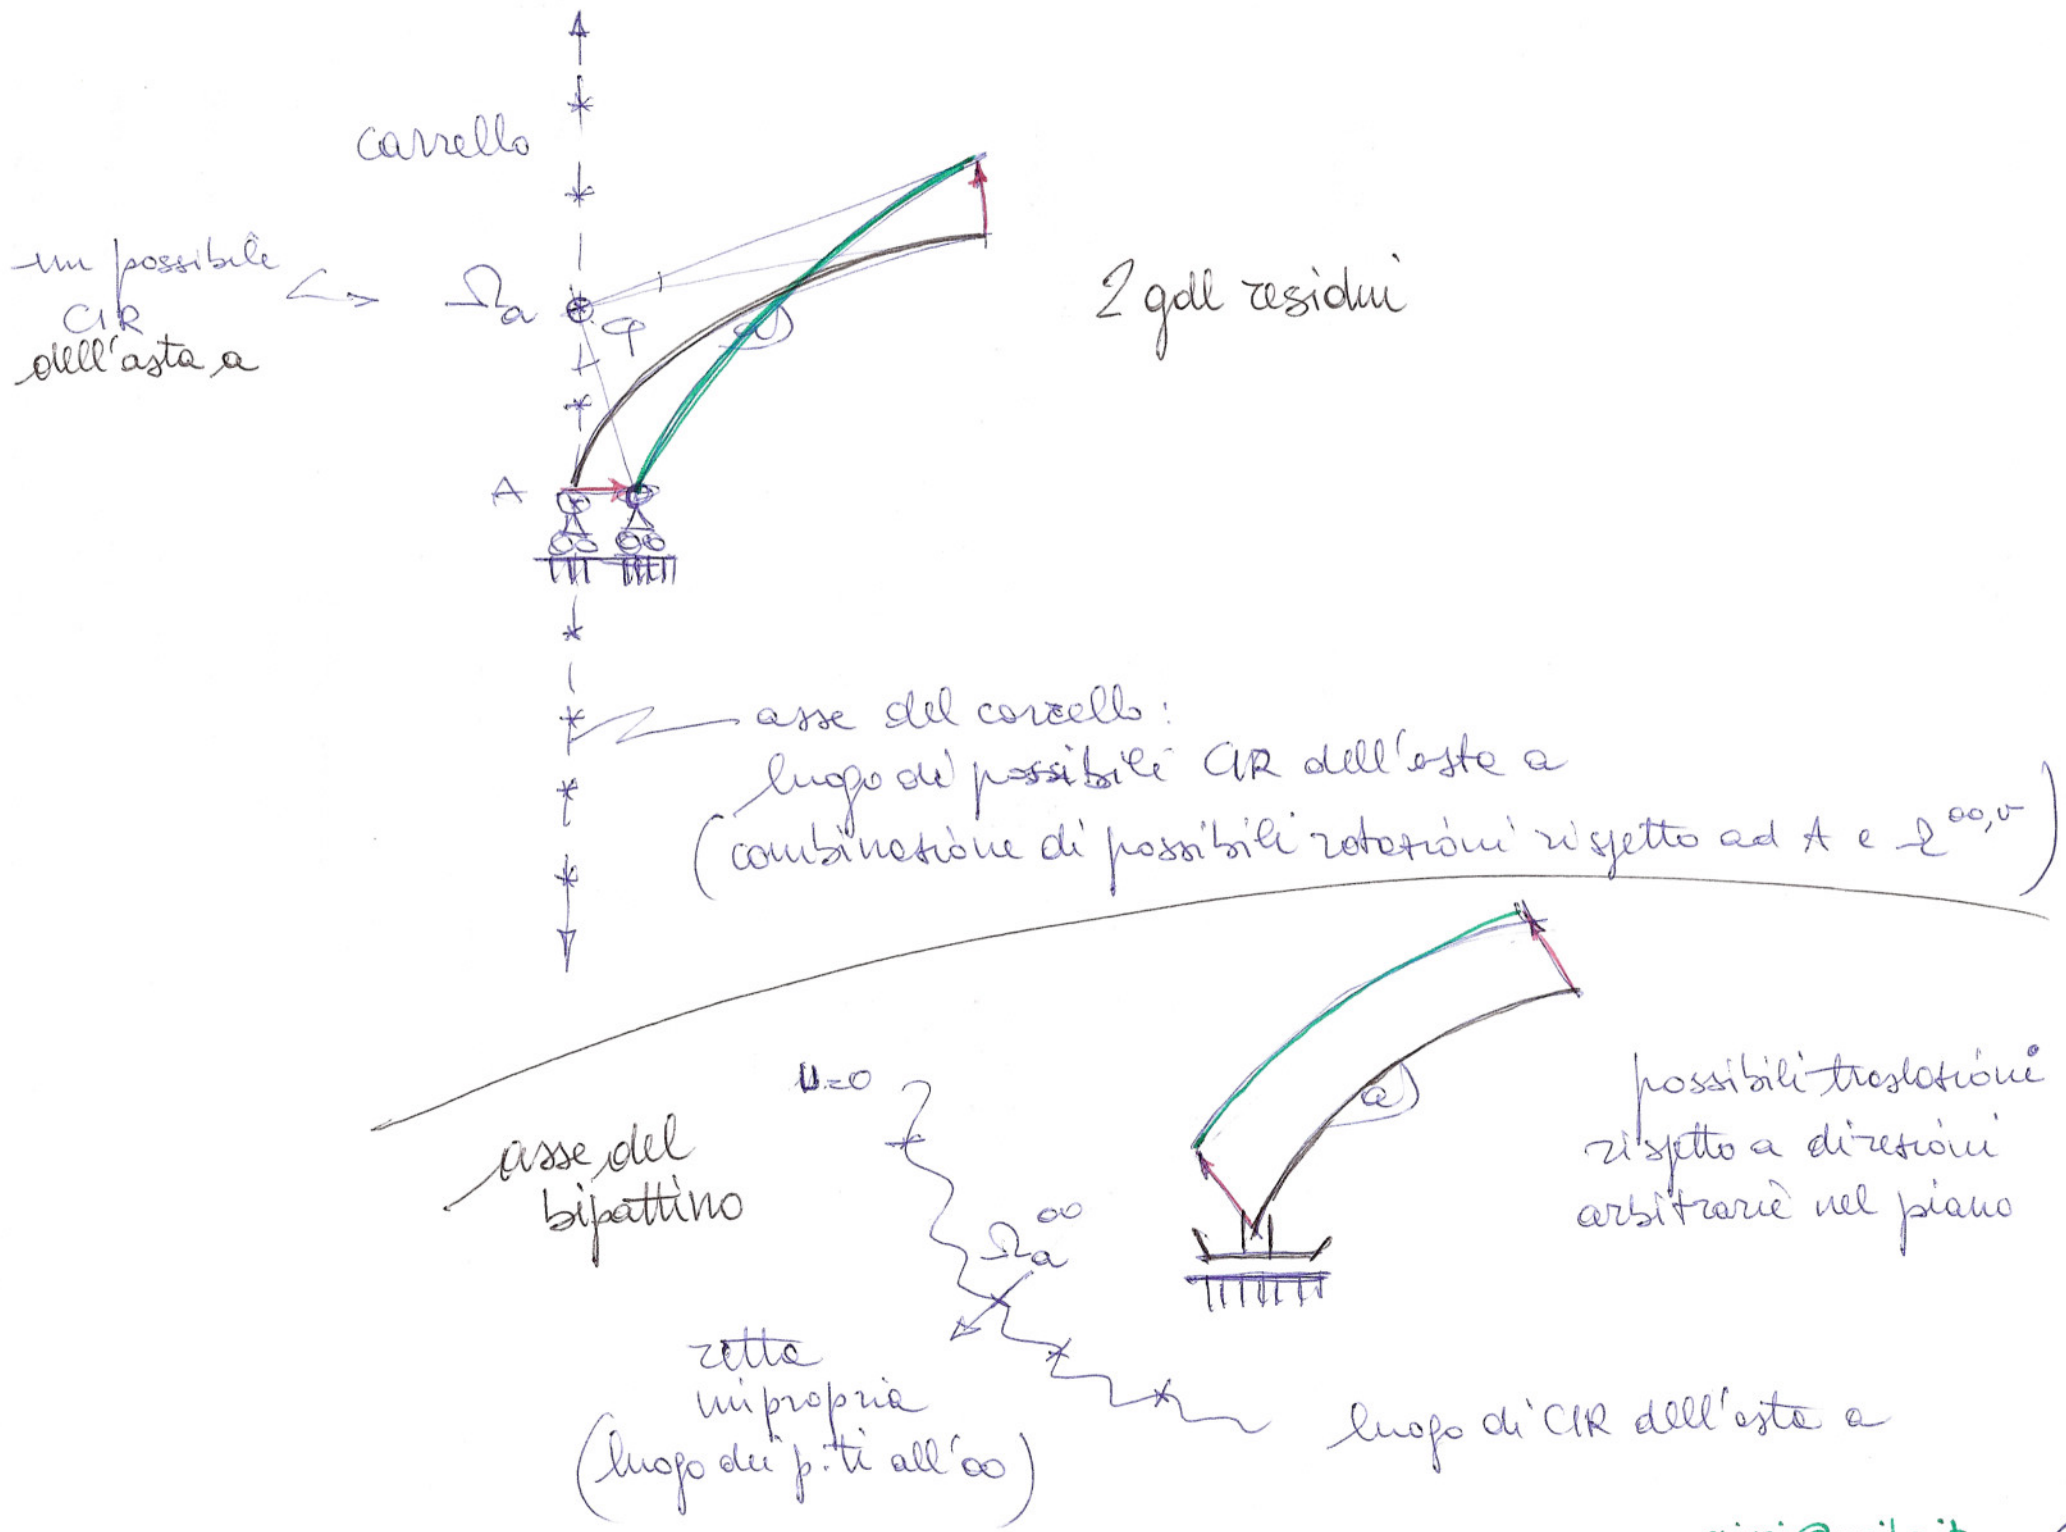 carrello
un possibile
CIR
dell'asta a
<->
Ωa
φ
a
2 gdl residui
A
asse del carrello:
luogo di possibili CIR dell'asta a
(combinazione di possibili rotazioni rispetto ad A e Ω∞,v)
asse del
bipattino
u=0
Ωa∞
a
possibili traslazioni
rispetto a direzioni
arbitrarie nel piano
retta
impropria
(luogo dei p.ti all'∞)
luogo di CIR dell'asta a